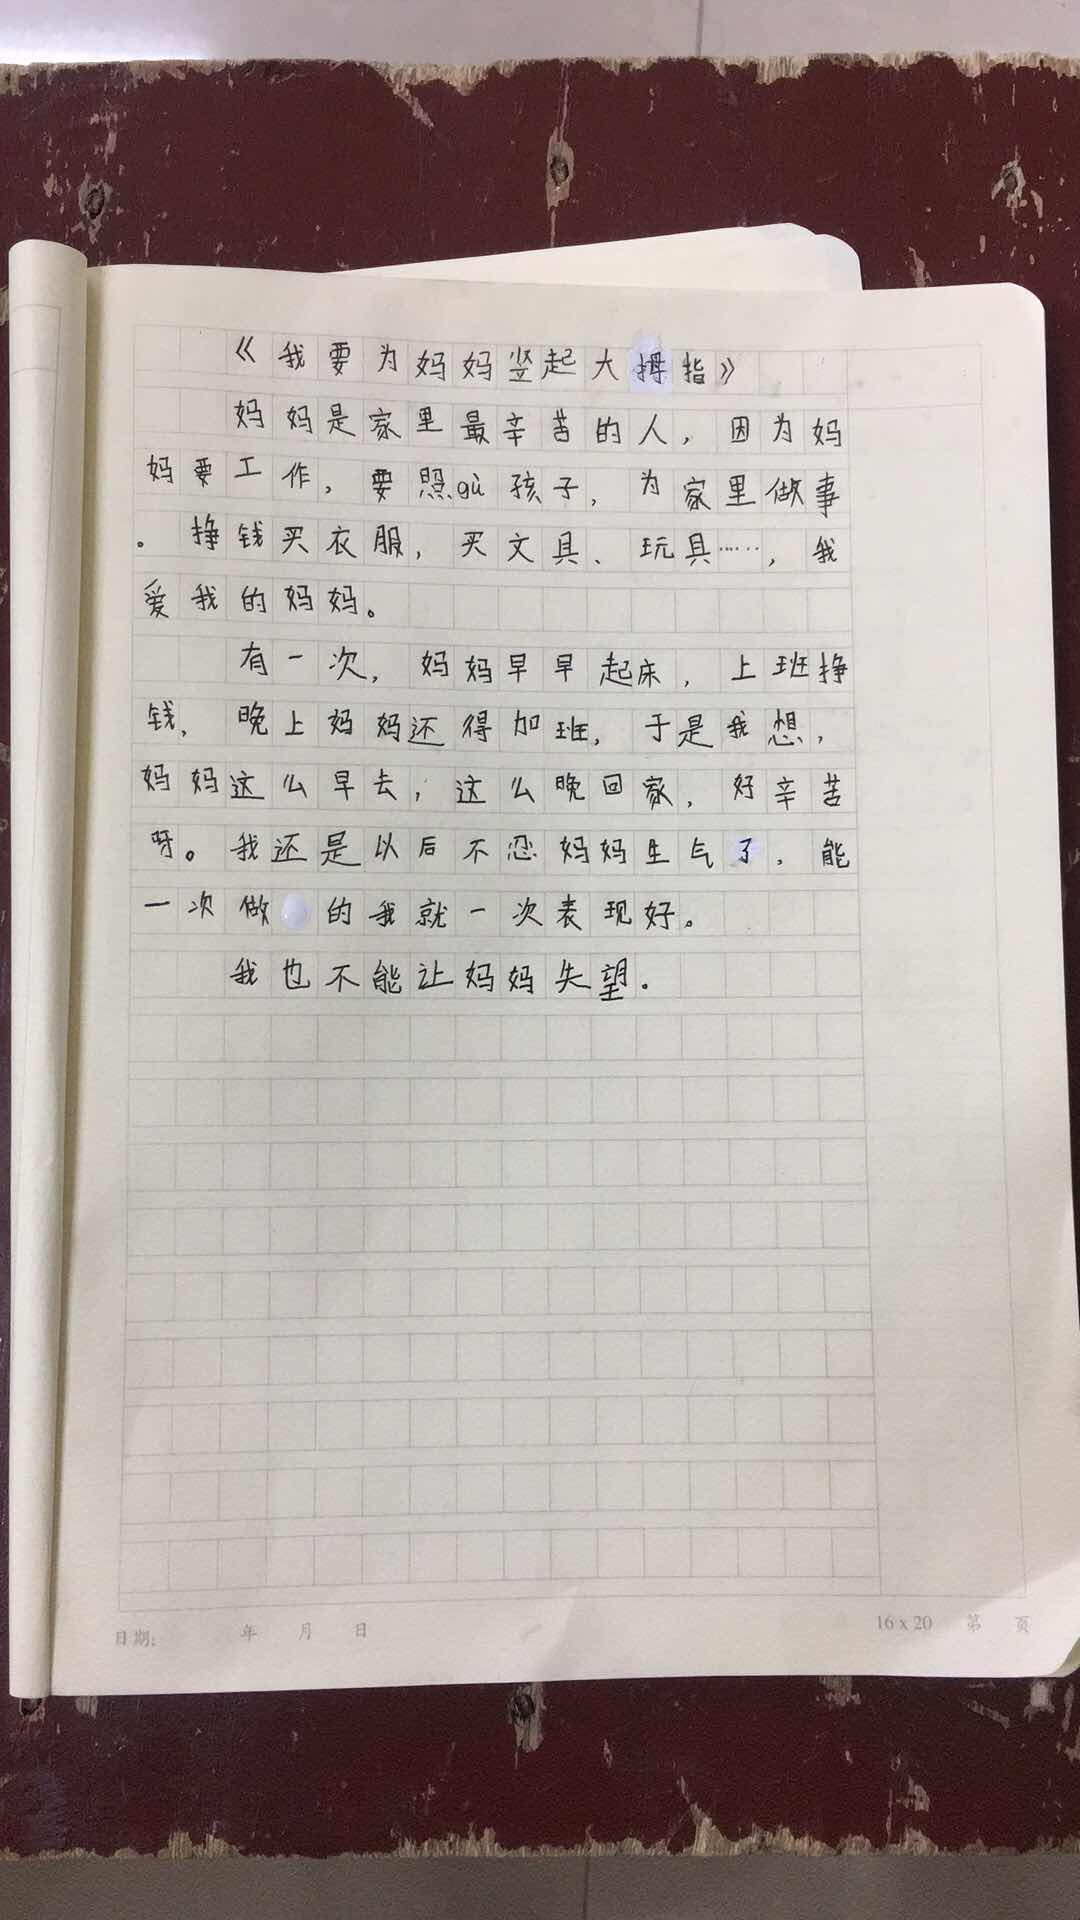 《我要为妈妈竖起大拇指》
妈妈是家里最辛苦的人，因为妈
妈要工作，要照gù孩子，为家里做事
。挣钱买衣服，买文具、玩具……，我
爱我的妈妈。
有一次，妈妈早早起床，上班挣
钱，晚上妈妈还得加班，于是我想，
妈妈这么早去，这么晚回家，好辛苦
呀。我还是以后不忍妈妈生气了，能
一次做的我就一次表现好。
我也不能让妈妈失望。
日期： 年 月 日
16 x 20 第 页